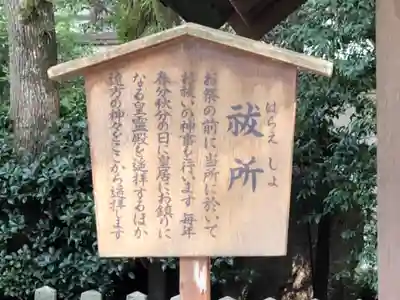 祓所
はらえ しょ
お祭の前に当所に於いて
お祓いの神事も行います 毎年
春分秋分の日に皇居にお鎮りに
なる皇霊殿を遥拝するほか
遠方の神々をここから遥拝します